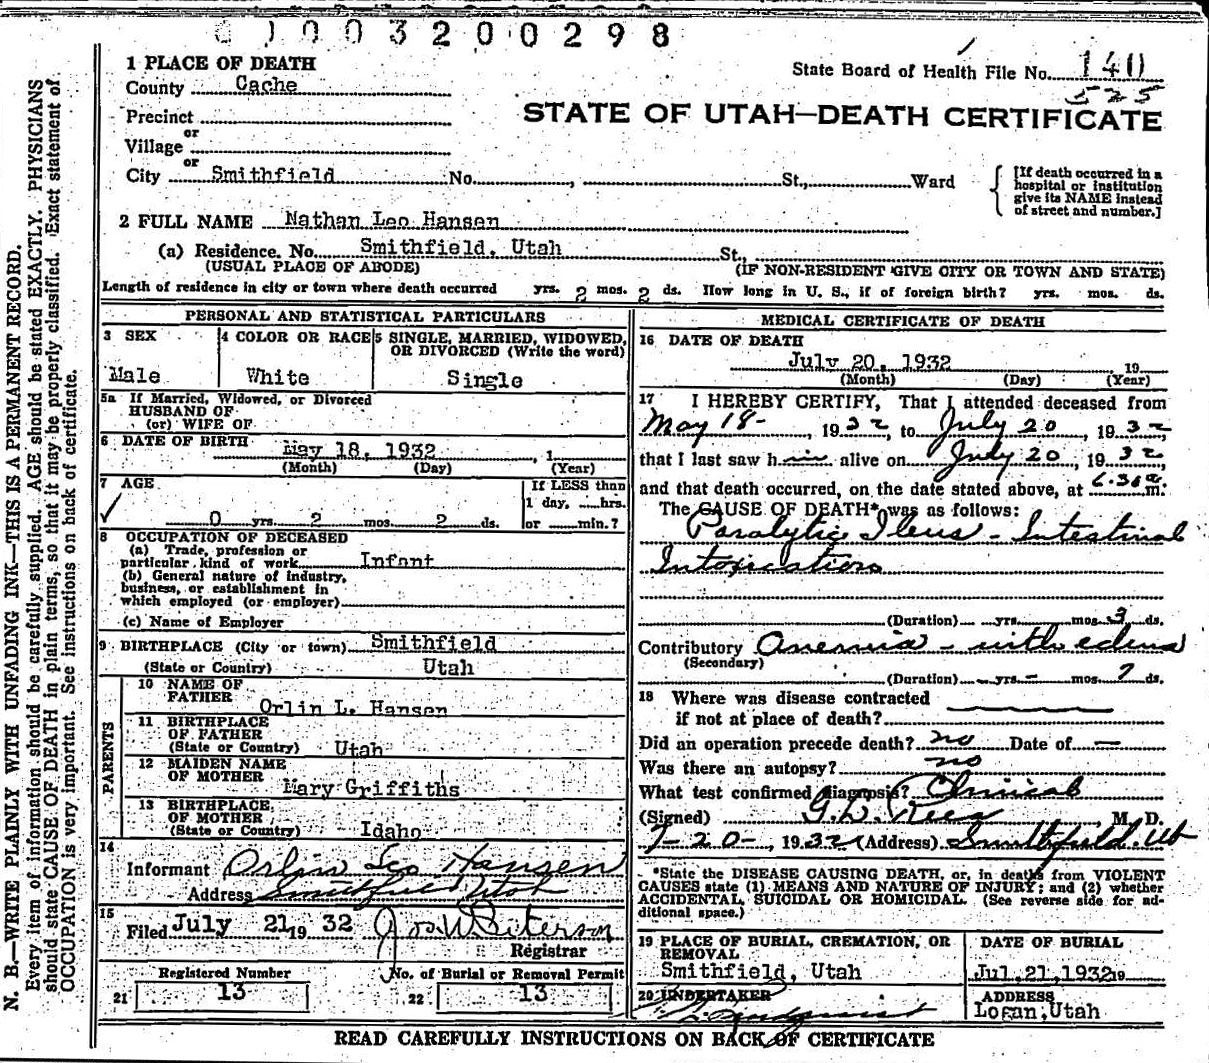 1003200298
1 PLACE OF DEATH
State Board of Health File No. 140
525
County Cache
STATE OF UTAH—DEATH CERTIFICATE
Precinct
or
Village
or
City Smithfield No. , St., Ward
[If death occurred in a
hospital or institution
give its NAME instead
of street and number.]
2 FULL NAME Nathan Leo Hansen
(a) Residence. No. Smithfield, Utah St.,
(USUAL PLACE OF ABODE) (IF NON-RESIDENT GIVE CITY OR TOWN AND STATE)
Length of residence in city or town where death occurred yrs. 2 mos. 2 ds. How long in U. S., if of foreign birth? yrs. mos. ds.
PERSONAL AND STATISTICAL PARTICULARS
3 SEX
Male
4 COLOR OR RACE
White
5 SINGLE, MARRIED, WIDOWED,
OR DIVORCED (Write the word)
Single
5a If Married, Widowed, or Divorced
HUSBAND OF
(or) WIFE OF
6 DATE OF BIRTH May 18, 1932, 1
(Month) (Day) (Year)
7 AGE
0 yrs. 2 mos. 2 ds.
If LESS than
1 day, hrs.
or min.?
8 OCCUPATION OF DECEASED
(a) Trade, profession or
particular kind of work Infant
(b) General nature of industry,
business, or establishment in
which employed (or employer)
(c) Name of Employer
9 BIRTHPLACE (City or town) Smithfield
(State or Country) Utah
PARENTS
10 NAME OF
FATHER Orlin L. Hansen
11 BIRTHPLACE
OF FATHER
(State or Country) Utah
12 MAIDEN NAME
OF MOTHER Mary Griffiths
13 BIRTHPLACE
OF MOTHER
(State or Country) Idaho
14
Informant Orlin Leo Hansen
Address Smithfield Utah
15
Filed July 21 19 32 Jos. W. Peterson
Registrar
Registered Number
21 13
No. of Burial or Removal Permit
22 13
MEDICAL CERTIFICATE OF DEATH
16 DATE OF DEATH
July 20, 1932 19
(Month) (Day) (Year)
17 I HEREBY CERTIFY, That I attended deceased from
May 18- , 1932, to July 20, 1932,
that I last saw him alive on July 20, 1932,
and that death occurred, on the date stated above, at 6.30a m.
The CAUSE OF DEATH* was as follows:
Paralytic Ileus - Intestinal
Intoxication
(Duration) yrs. mos. 3 ds.
Contributory Anemia - with edema
(Secondary)
(Duration) - yrs. - mos. 7 ds.
18 Where was disease contracted
if not at place of death?
Did an operation precede death? no Date of —
Was there an autopsy? no
What test confirmed diagnosis? Clinical
(Signed) G. L. Rees M. D.
7-20-, 1932 (Address) Smithfield. Ut
*State the DISEASE CAUSING DEATH, or, in deaths from VIOLENT
CAUSES state (1) MEANS AND NATURE OF INJURY; and (2) whether
ACCIDENTAL, SUICIDAL OR HOMICIDAL. (See reverse side for ad-
ditional space.)
19 PLACE OF BURIAL, CREMATION, OR
REMOVAL
Smithfield, Utah
DATE OF BURIAL
Jul, 21, 1932 19
20 UNDERTAKER
ADDRESS
Logan, Utah
READ CAREFULLY INSTRUCTIONS ON BACK OF CERTIFICATE
N. B.—WRITE PLAINLY WITH UNFADING INK—THIS IS A PERMANENT RECORD.
Every item of information should be carefully supplied. AGE should be stated EXACTLY. PHYSICIANS
should state CAUSE OF DEATH in plain terms, so that it may be properly classified. Exact statement of
OCCUPATION is very important. See instructions on back of certificate.